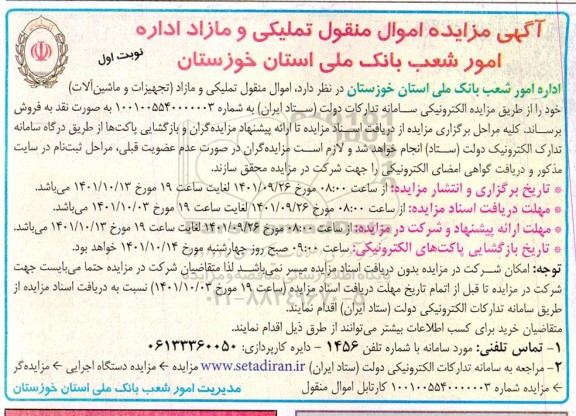 آگهی مزایده اموال منقول تملیکی و مازاد اداره
امور شعب بانک ملی استان خوزستان
نوبت اول
اداره امور شعب بانک ملی استان خوزستان در نظر دارد، اموال منقول تملیکی و مازاد (تجهیزات و ماشین‌آلات)
خود را از طریق مزایده الکترونیکی سامانه تدارکات دولت (ستاد ایران) به شماره ۱۰۰۱۰۰۵۵۴۰۰۰۰۰۰۳ به صورت نقد به فروش
برساند. کلیه مراحل برگزاری مزایده از دریافت اسناد مزایده تا ارائه پیشنهاد مزایده‌گران و بازگشایی پاکت‌ها از طریق درگاه سامانه
تدارک الکترونیک دولت (ستاد) انجام خواهد شد و لازم است مزایده‌گران در صورت عدم عضویت قبلی، مراحل ثبت‌نام در سایت
مذکور و دریافت گواهی امضای الکترونیکی را جهت شرکت در مزایده محقق سازند.
* تاریخ برگزاری و انتشار مزایده: از ساعت ۰۸:۰۰ مورخ ۱۴۰۱/۰۹/۲۶ لغایت ساعت ۱۹ مورخ ۱۴۰۱/۱۰/۱۳ می‌باشد.
* مهلت دریافت اسناد مزایده: از ساعت ۰۸:۰۰ مورخ ۱۴۰۱/۰۹/۲۶ لغایت ساعت ۱۹ مورخ ۱۴۰۱/۱۰/۰۳ می‌باشد.
* مهلت ارائه پیشنهاد و شرکت در مزایده: از ساعت ۰۸:۰۰ مورخ ۱۴۰۱/۰۹/۲۶ لغایت ساعت ۱۹ مورخ ۱۴۰۱/۱۰/۱۳ می‌باشد.
* تاریخ بازگشایی پاکت‌های الکترونیکی: ساعت ۰۹:۰۰ صبح روز چهارشنبه مورخ ۱۴۰۱/۱۰/۱۴ خواهد بود.
توجه: امکان شرکت در مزایده بدون دریافت اسناد مزایده میسر نمی‌باشد لذا متقاضیان شرکت در مزایده حتما می‌بایست جهت
شرکت در مزایده تا قبل از اتمام تاریخ مهلت دریافت اسناد مزایده (ساعت ۱۹ مورخ ۱۴۰۱/۱۰/۰۳) نسبت به دریافت اسناد مزایده از
طریق سامانه تدارکات الکترونیکی دولت (ستاد ایران) اقدام نمایند.
متقاضیان خرید برای کسب اطلاعات بیشتر می‌توانند از طرق ذیل اقدام نمایند.
۱- تماس تلفنی: مورد سامانه با شماره تلفن ۱۴۵۶ - دایره کارپردازی: ۰۶۱۳۳۳۶۰۰۵۰
۲- مراجعه به سامانه تدارکات الکترونیکی دولت (ستاد ایران) www.setadiran.ir مزایده ← مزایده دستگاه اجرایی ← مزایده‌گر
← مزایده شماره ۱۰۰۱۰۰۵۵۴۰۰۰۰۰۰۳ کارتابل اموال منقول
مدیریت امور شعب بانک ملی استان خوزستان